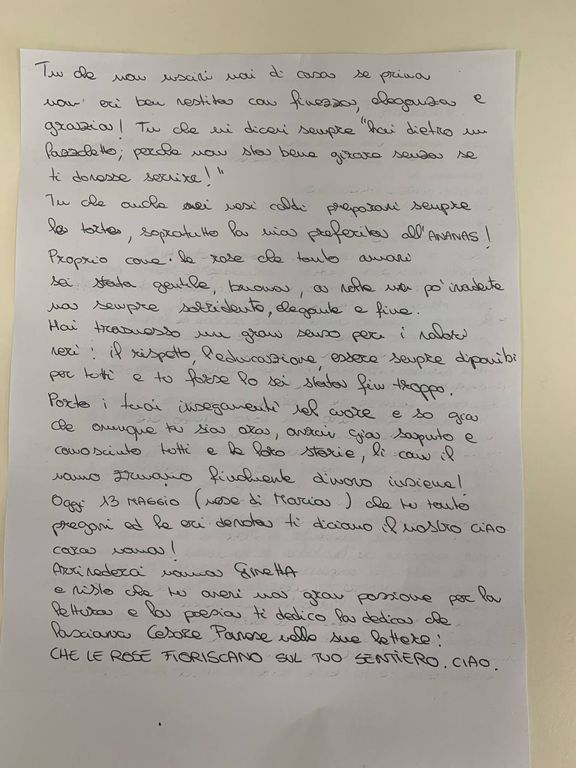 Tu che non uscivi mai di casa se prima
non eri ben vestita con finezza, eleganza e
grazia! Tu che mi dicevi sempre "hai dietro un
fazzoletto; perchè non sta bene girare senza se
ti dovesse servire!"
Tu che anche nei mesi caldi preparavi sempre
la torta, sopratutto la mia preferita all'ANANAS!
Proprio come le rose che tanto amavi
sei stata gentile, buona, a volte un po' irruente
ma sempre sorridente, elegante e fine.
Hai trasmesso un gran senso per i valori
veri: il rispetto, l'educazione, essere sempre diponibi
per tutti e tu forse lo sei stata fin troppo.
Porto i tuoi insegamenti nel cuore e so già
che ovunque tu sia ora, avrai già saputo e
conosciuto tutti e le loro storie, lì con il
nonno Ermanno finalmente di nuovo insieme!
Oggi 13 MAGGIO (mese di Maria) che tu tanto
pregavi ed le eri devota ti diciamo il nostro CIAO
cara nonna!
Arrivederci nonna GINETTA
e visto che tu avevi una gran passione per la
lettura e la poesia ti dedico la dedica che
lasciava Cesare Pavese nelle sue lettere:
CHE LE ROSE FIORISCANO SUL TUO SENTIERO. CIAO.